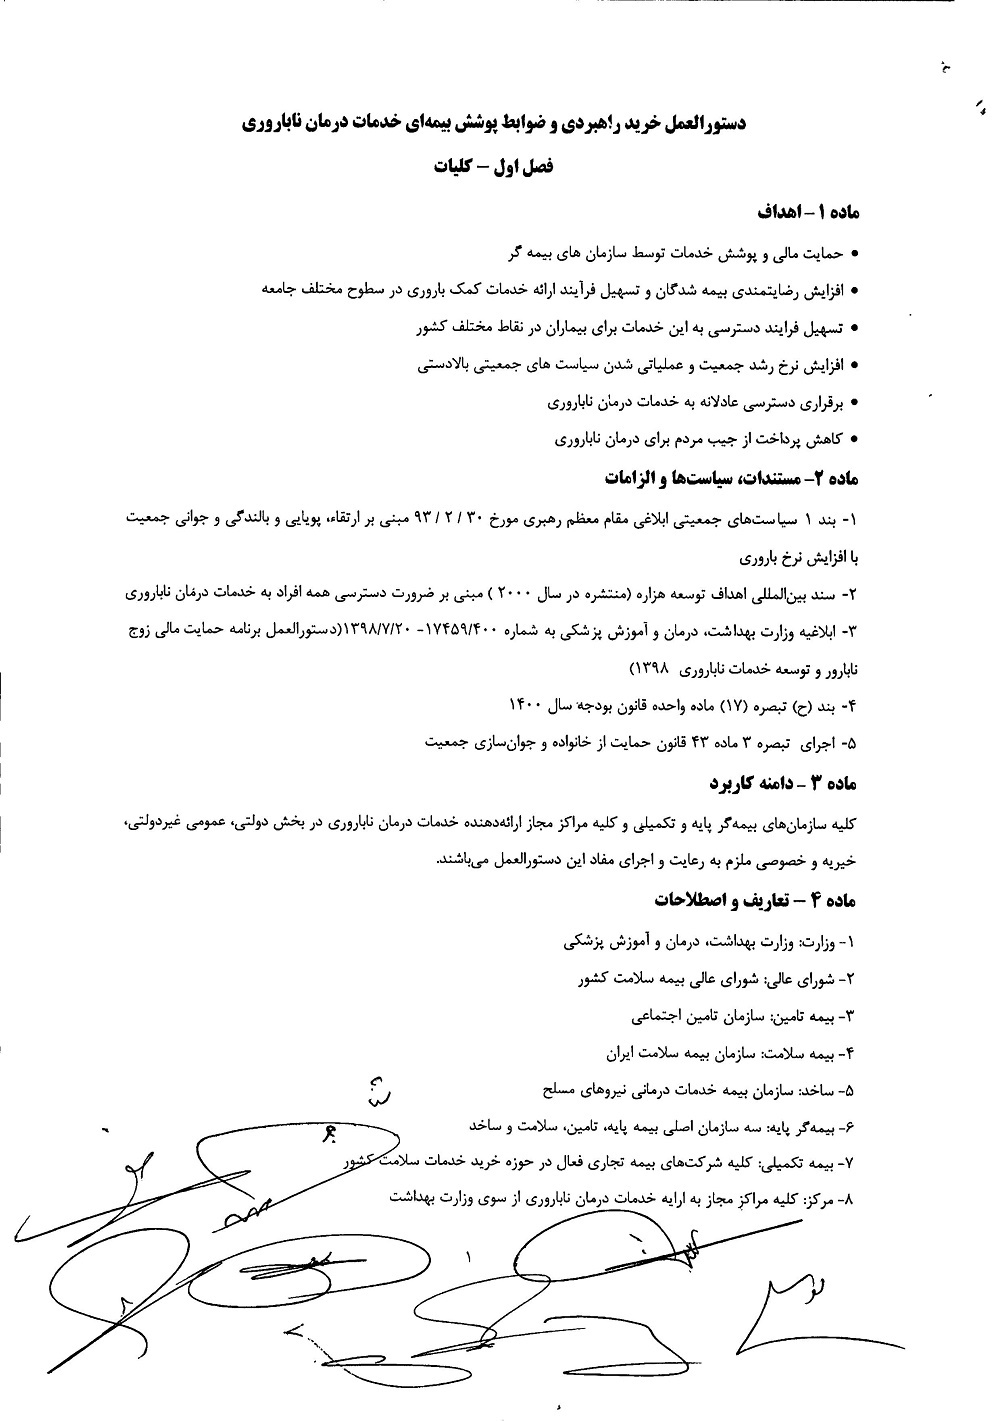 دستورالعمل خرید راهبردی و ضوابط پوشش بیمه‌ای خدمات درمان ناباروری
فصل اول – کلیات
ماده ۱ – اهداف
• حمایت مالی و پوشش خدمات توسط سازمان های بیمه گر
• افزایش رضایتمندی بیمه شدگان و تسهیل فرآیند ارائه خدمات کمک باروری در سطوح مختلف جامعه
• تسهیل فرایند دسترسی به این خدمات برای بیماران در نقاط مختلف کشور
• افزایش نرخ رشد جمعیت و عملیاتی شدن سیاست های جمعیتی بالادستی
• برقراری دسترسی عادلانه به خدمات درمان ناباروری
• کاهش پرداخت از جیب مردم برای درمان ناباروری
ماده ۲– مستندات، سیاست‌ها و الزامات
۱- بند ۱ سیاست‌های جمعیتی ابلاغی مقام معظم رهبری مورخ ۳۰ / ۲ / ۹۳ مبنی بر ارتقاء، پویایی و بالندگی و جوانی جمعیت
با افزایش نرخ باروری
۲- سند بین‌المللی اهداف توسعه هزاره (منتشره در سال ۲۰۰۰ ) مبنی بر ضرورت دسترسی همه افراد به خدمات درمان ناباروری
۳- ابلاغیه وزارت بهداشت، درمان و آموزش پزشکی به شماره ۱۷۴۵۹/۴۰۰- ۱۳۹۸/۷/۲۰(دستورالعمل برنامه حمایت مالی زوج
نابارور و توسعه خدمات ناباروری ۱۳۹۸)
۴- بند (ح) تبصره (۱۷) ماده واحده قانون بودجه سال ۱۴۰۰
۵- اجرای تبصره ۳ ماده ۴۳ قانون حمایت از خانواده و جوان‌سازی جمعیت
ماده ۳ – دامنه کاربرد
کلیه سازمان‌های بیمه‌گر پایه و تکمیلی و کلیه مراکز مجاز ارائه‌دهنده خدمات درمان ناباروری در بخش دولتی، عمومی غیردولتی،
خیریه و خصوصی ملزم به رعایت و اجرای مفاد این دستورالعمل می‌باشند.
ماده ۴ – تعاریف و اصطلاحات
۱- وزارت: وزارت بهداشت، درمان و آموزش پزشکی
۲- شورای عالی: شورای عالی بیمه سلامت کشور
۳- بیمه تامین: سازمان تامین اجتماعی
۴- بیمه سلامت: سازمان بیمه سلامت ایران
۵- ساخد: سازمان بیمه خدمات درمانی نیروهای مسلح
۶- بیمه‌گر پایه: سه سازمان اصلی بیمه پایه، تامین، سلامت و ساخد
۷- بیمه تکمیلی: کلیه شرکت‌های بیمه تجاری فعال در حوزه خرید خدمات سلامت کشور
۸- مرکز: کلیه مراکز مجاز به ارایه خدمات درمان ناباروری از سوی وزارت بهداشت